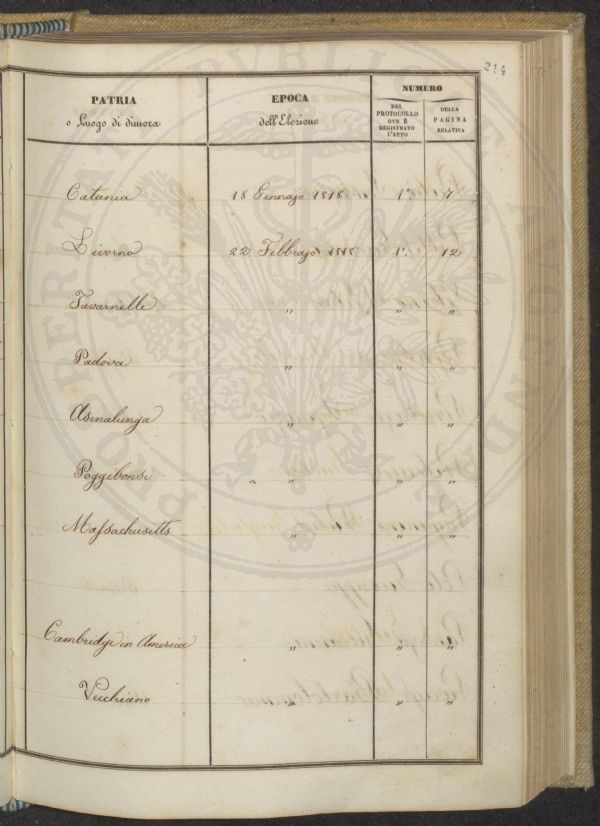 214
PATRIA
o Luogo di dimora
EPOCA
dell'Elezione
NUMERO
DEL
PROTOCOLLO
OVE È
REGISTRATO
L'ATTO
DELLA
PAGINA
RELATIVA
Catania 18 Gennajo 1818 1° 7
Livorno 22 Febbrajo 1°. 12
Tavarnelle " " "
Padova " " "
Asinalunga " " "
Poggibonsi " " "
Massachusetts " " "
Cambridge in America " " "
Vecchiano " " "